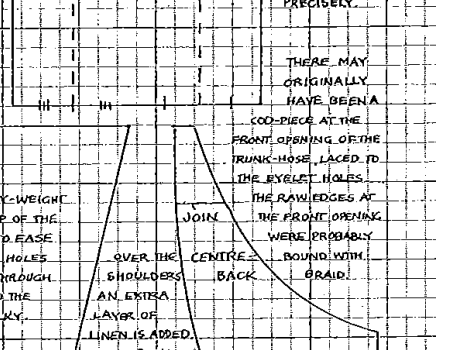 PRECISELY.
THERE MAY
ORIGINALLY
HAVE BEEN A
COD-PIECE AT THE
FRONT OPENING OF THE
TRUNK-HOSE, LACED TO
THE EYELET HOLES.
THE RAW EDGES AT
THE FRONT OPENING
WERE PROBABLY
BOUND WITH
BRAID.
Y-WEIGHT
P OF THE
O EASE
HOLES
THROUGH
THE
KY.
JOIN
CENTRE-
BACK
OVER THE
SHOULDERS
AN EXTRA
LAYER OF
LINEN IS ADDED.